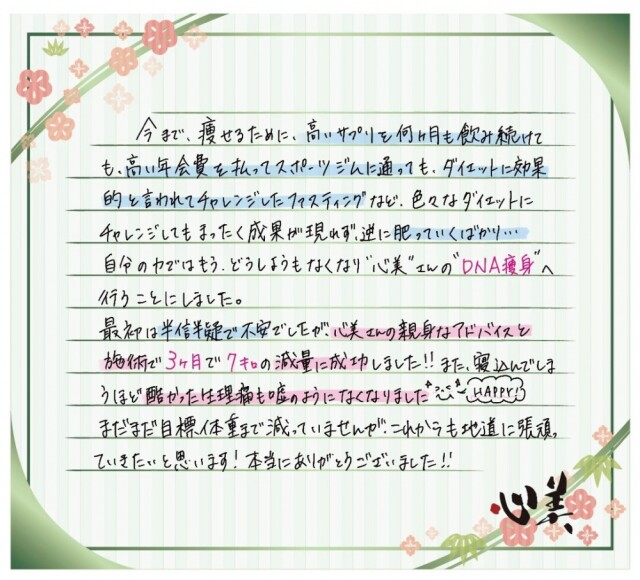 今まで、痩せるために、高いサプリを何ヶ月も飲み続けて
も、高い年会費を払ってスポーツジムに通っても、ダイエットに効果
的と言われてチャレンジしたファスティングなど、色々なダイエットに
チャレンジしてもまったく成果が現れず、逆に肥っていくばかり…
自分の力ではもう、どうしようもなくなり"心美"さんの"DNA痩身"へ
行うことにしました。
最初は半信半疑で不安でしたが、心美さんの親身なアドバイスと
施術で3ヶ月で7キロの減量に成功しました!!また、寝込んでしま
うほど酷かった生理痛も嘘のようになくなりました HAPPY!
まだまだ目標体重まで減っていませんが、これからも地道に頑張っ
ていきたいと思います!本当にありがとうございました!!
心美